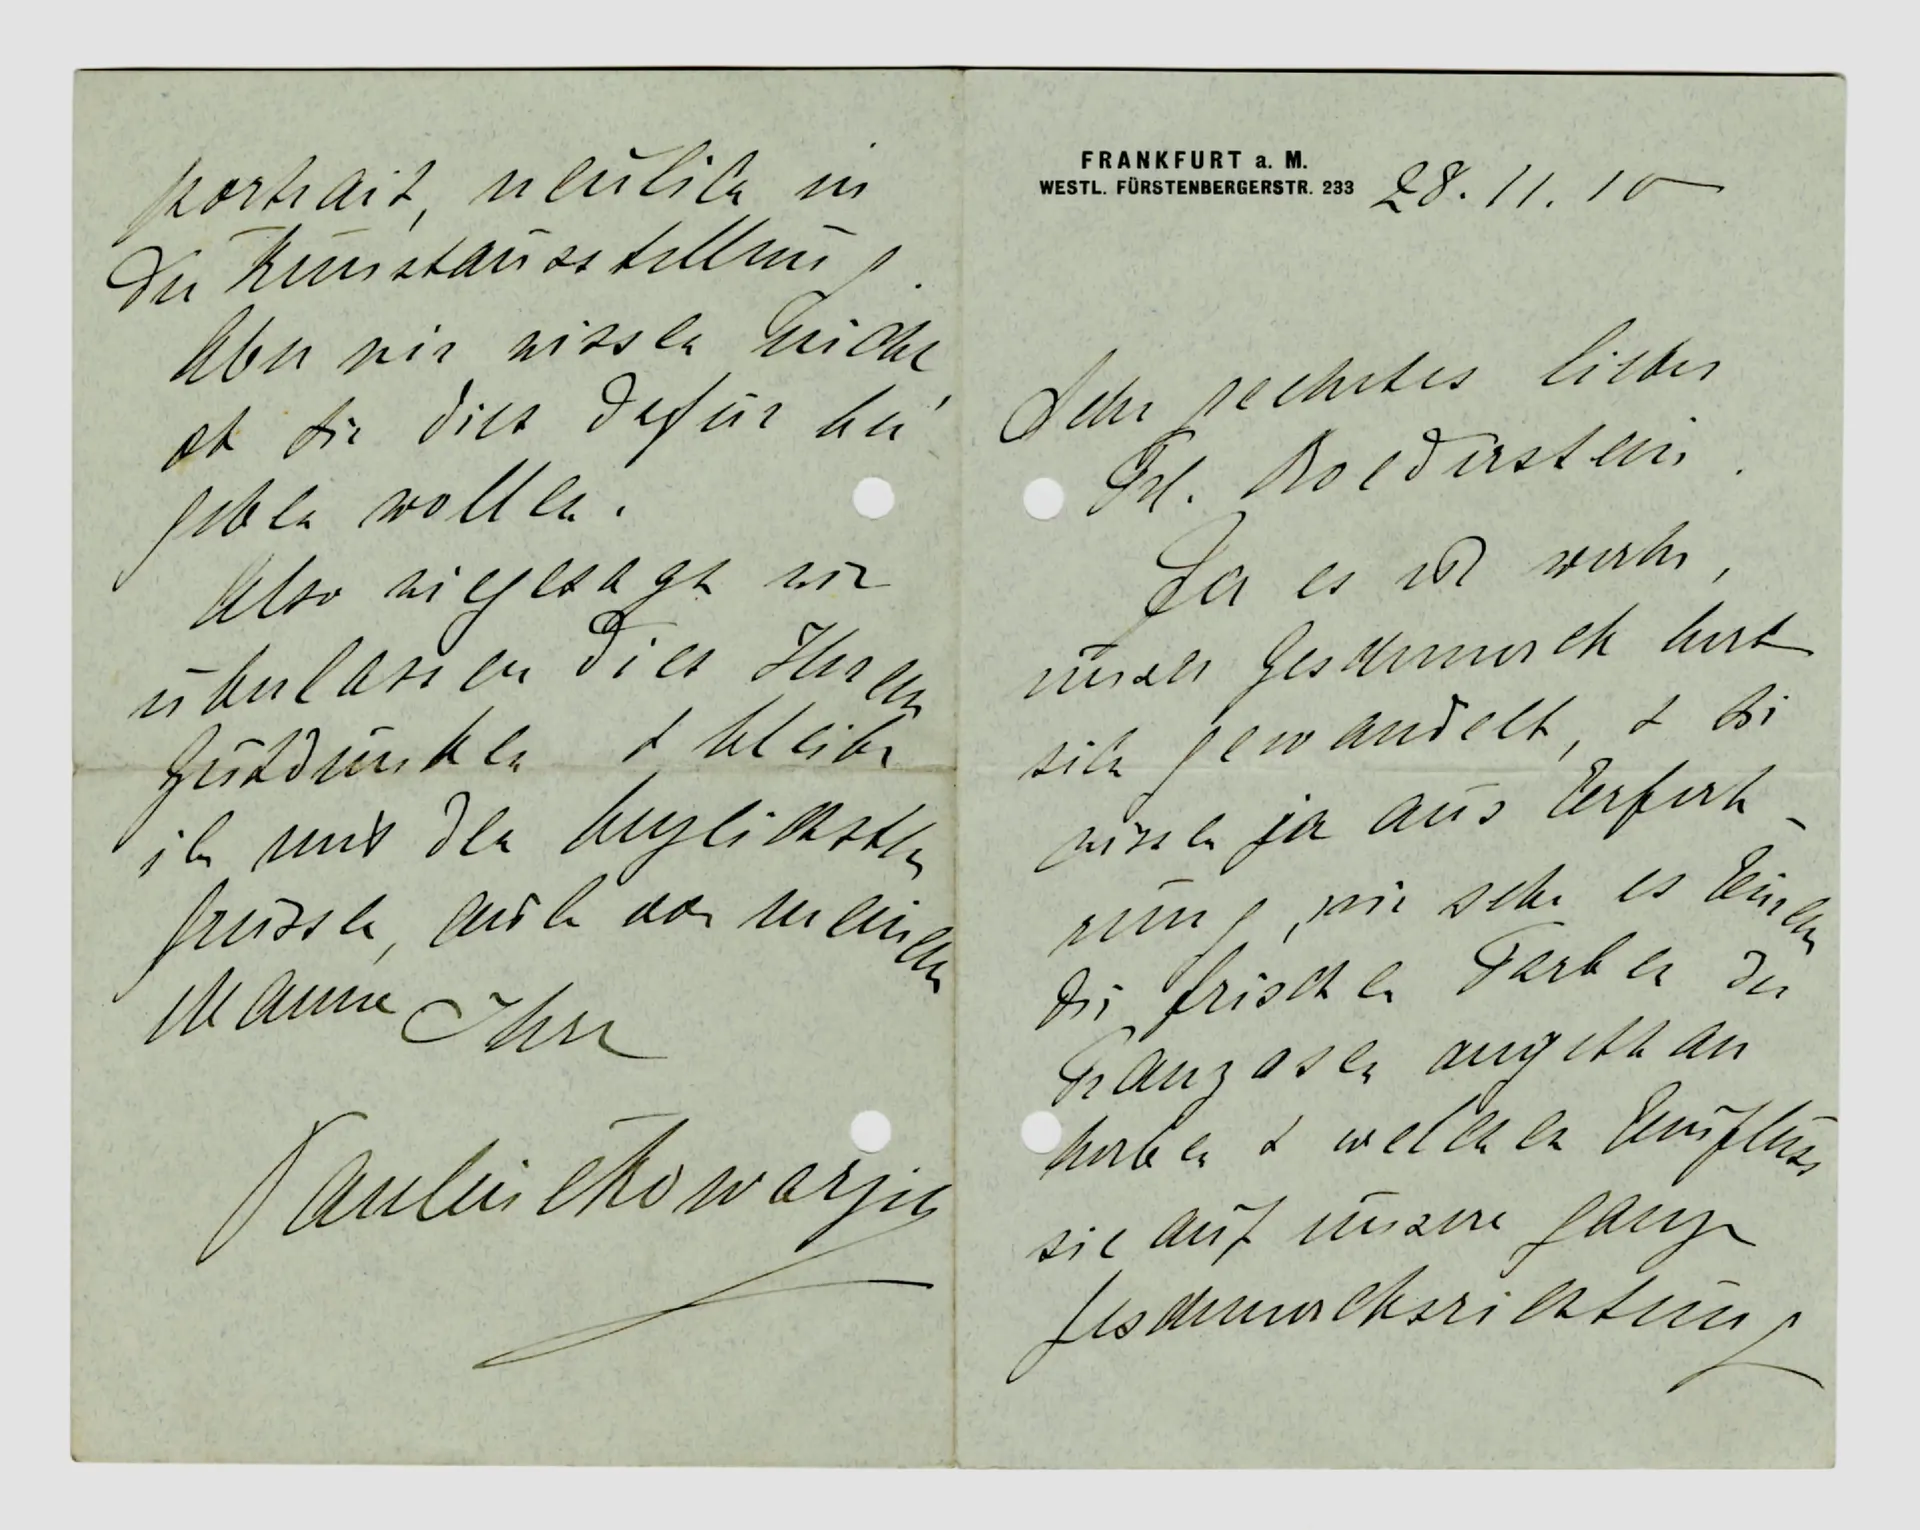 FRANKFURT a. M.
WESTL. FÜRSTENBERGERSTR. 233 28.11.10
Sehr geehrtes liebes
Frl. Roederstein.
Ja es ist wahr,
unser Geschmack hat
sich gewandelt, & Sie
wissen ja aus Erfah-
rung, wie sehr es Einem
die frischen Farben der
Franzosen angethan
haben & welchen Einfluss
sie auf unsere ganze
Geschmacksrichtung
portrait, neulich in
der Kunstausstellung.
Aber wir wissen nicht
ob Sie dies dafür her-
geben wollen.
Also wie gesagt wir
überlassen dies Ihrem
Gutdünken & bleibe
ich mit den herzlichsten
Grüssen, auch von meinem
Manne Ihre
Pauline Kowarzik